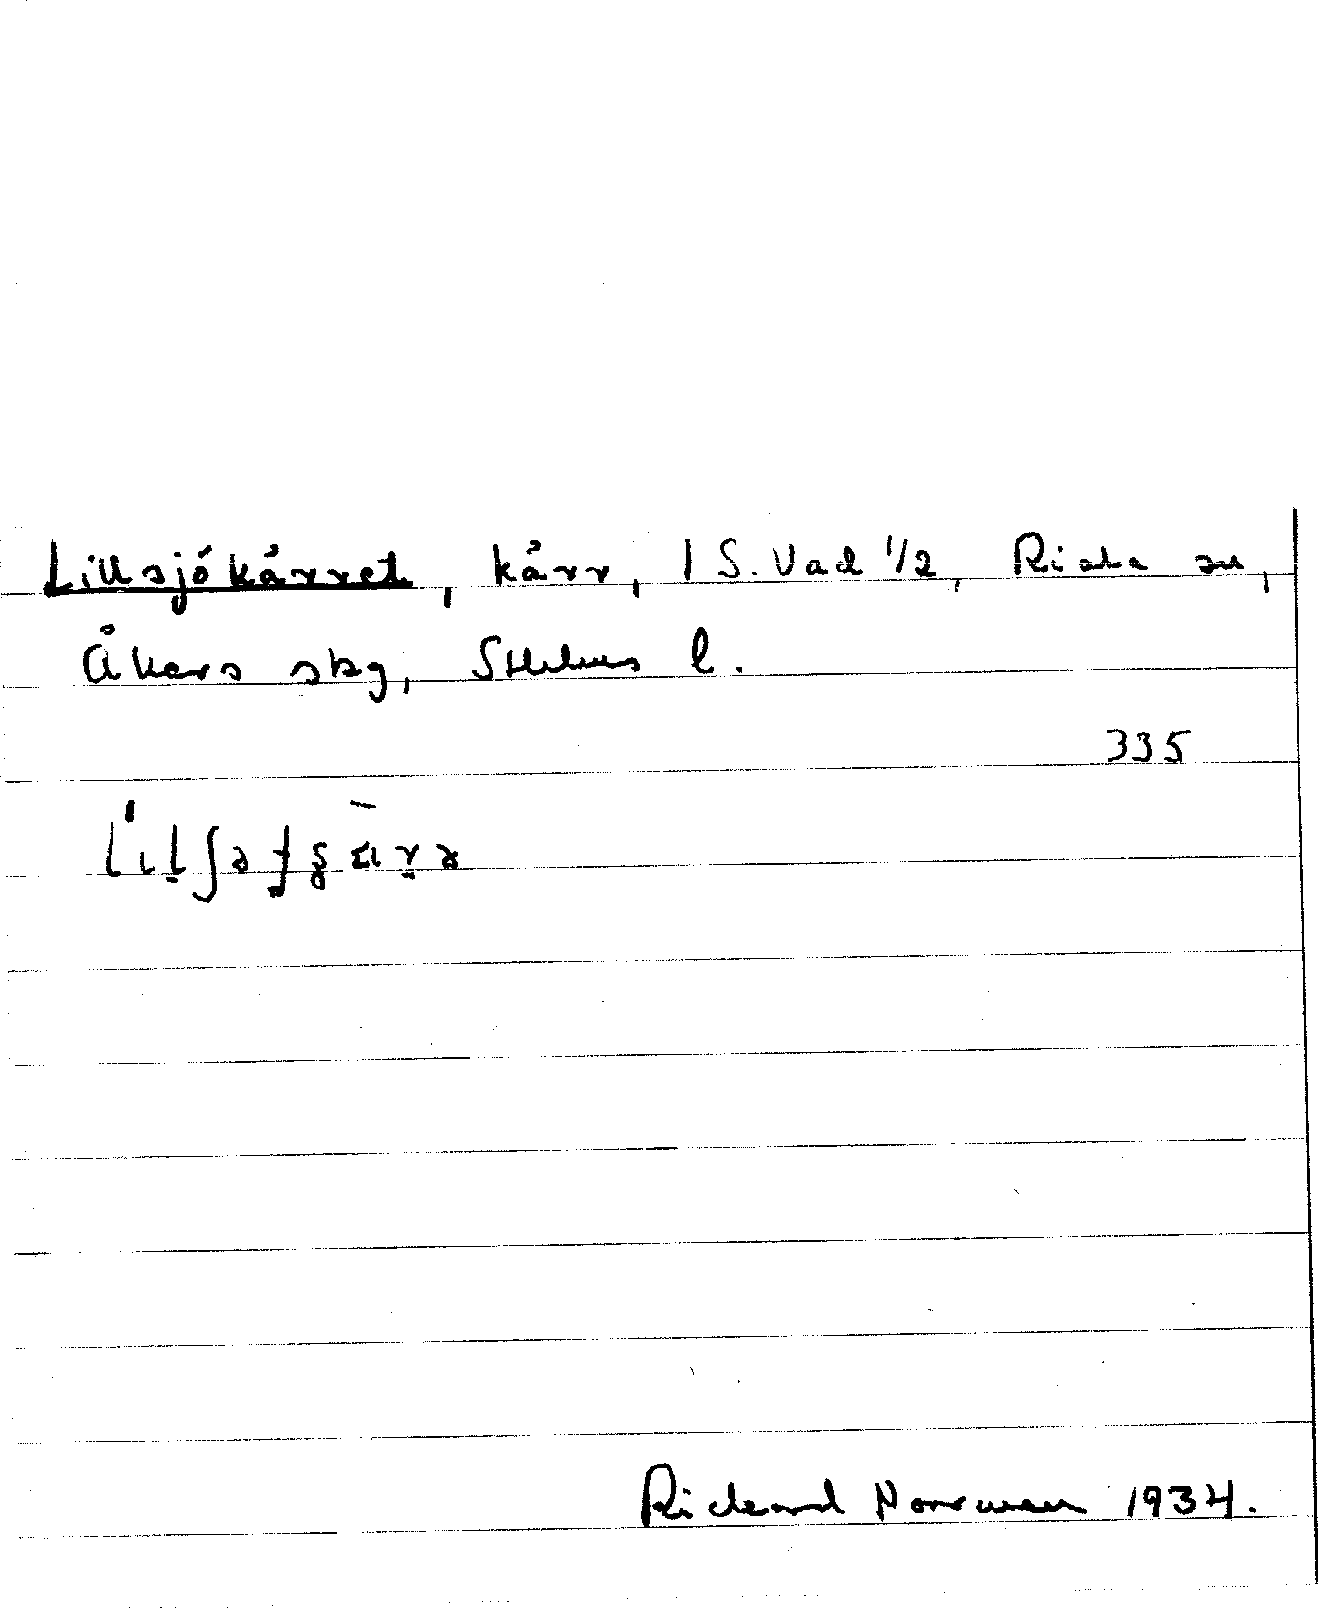 Lillsjökärret, kärr, 1 S. Vad 1/2, Riala sn,
Åkers skg, Sthlms l.
335
Richard Norrman 1934.